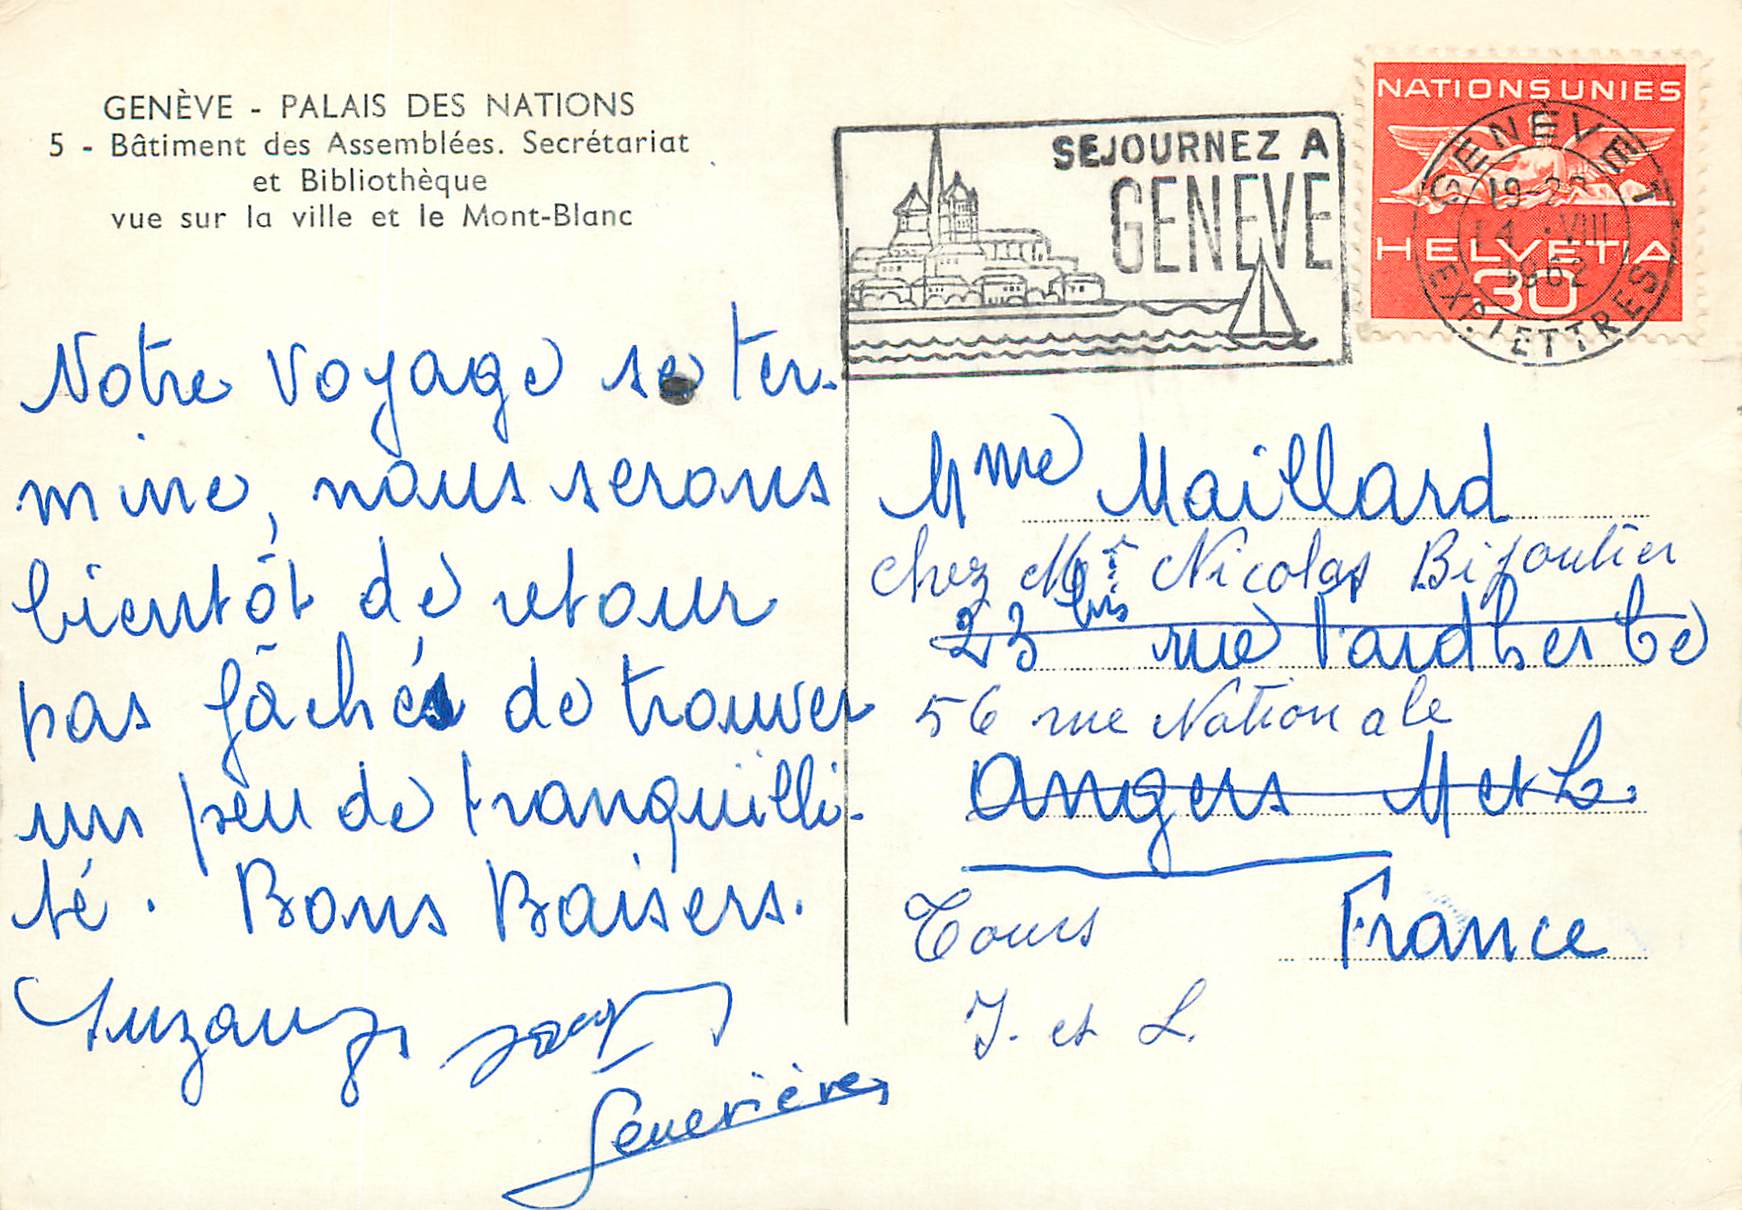 GENÈVE - PALAIS DES NATIONS
5 - Bâtiment des Assemblées. Secrétariat
et Bibliothèque
vue sur la ville et le Mont-Blanc
Notre voyage se ter-
mine, nous serons
bientôt de retour
pas fâchés de trouver
un peu de tranquilli-
té. Bons Baisers.
Suzanne
Geneviève
SEJOURNEZ A
GENEVE
NATIONS UNIES
HELVETIA
30
GENÈVE 1
19-20
14.VIII
1962
EXP. LETTRES
Mme Maillard
chez Mr Nicolas Bijoutier
23 bis rue Faidherbe
56 rue Nationale
Angers M et L.
Tours
France
I. et L.